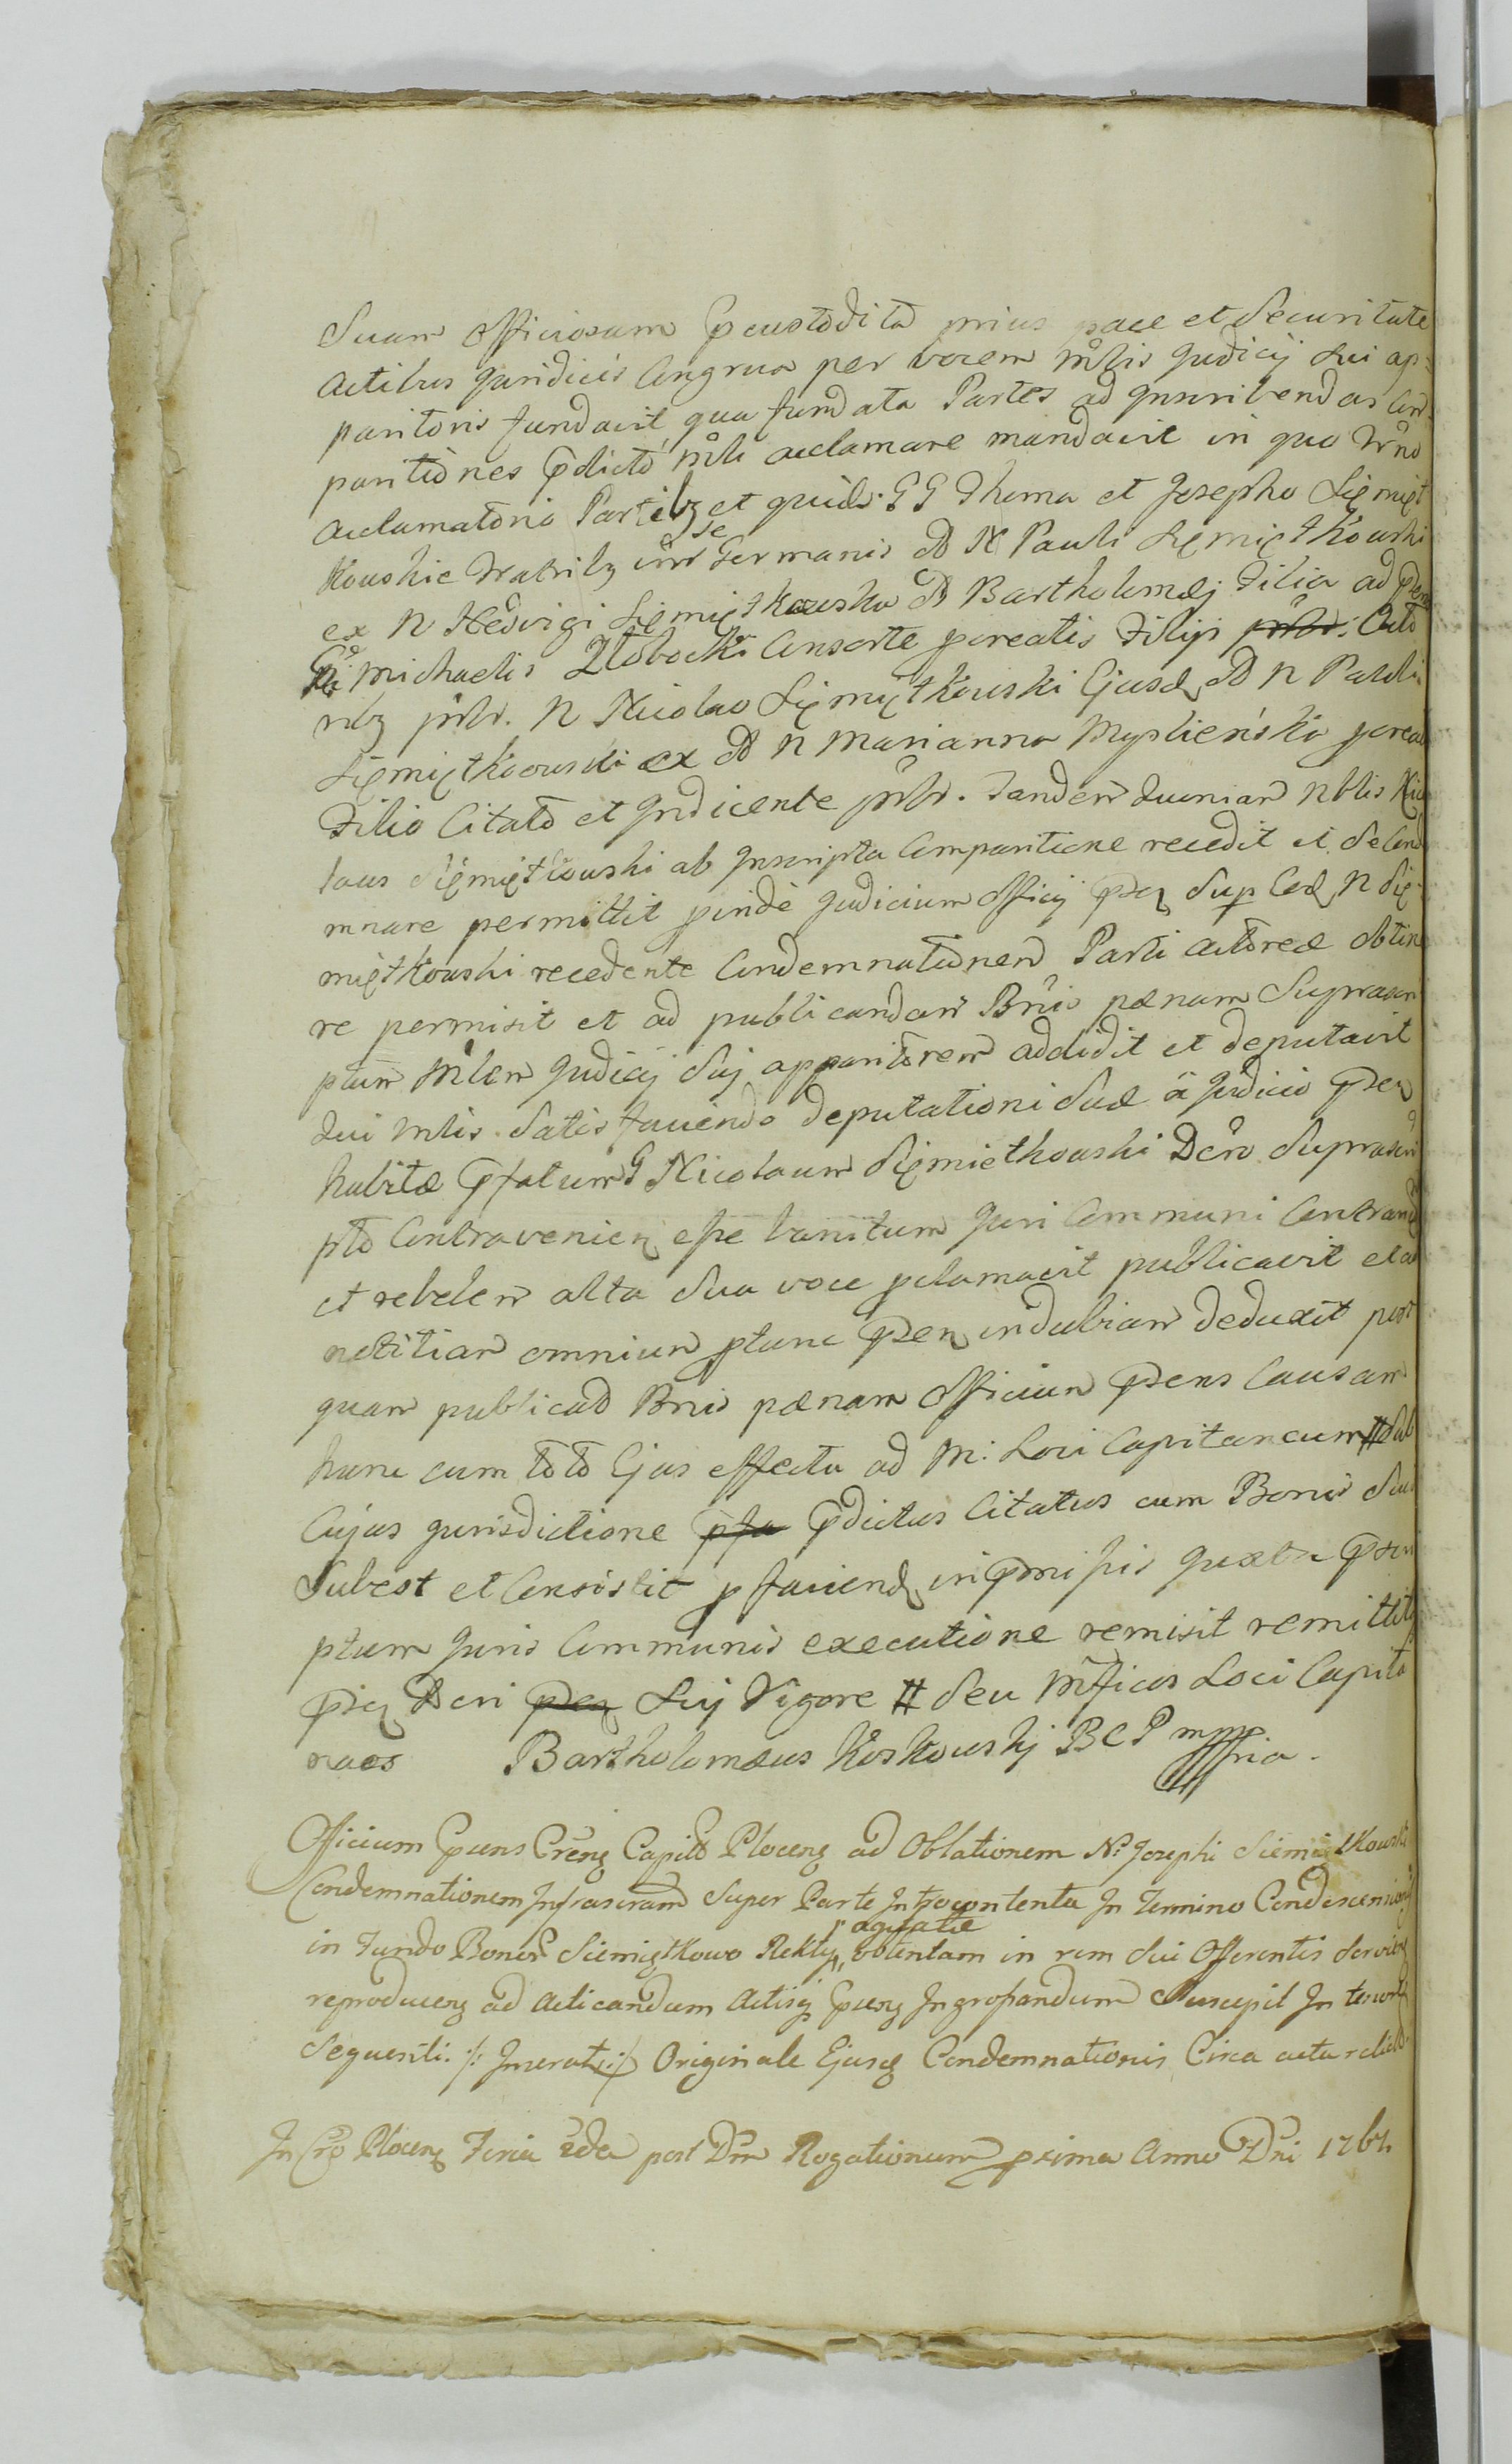 Suam officiosam p̄custodita prius pace et securitate
actibus juridicis congrua per vocem mnlis Judicij sui ap=
paritoris fundavit qua fundata Partes ad inscribendas com
paritiones p̄dicto mnli acclamare mandavit in quo trno
acclamatorio Partibq et quidi: GG Thoma et Josepho Siemięt
kowskie Fratribq inr se Germanis oD N Pauli Siemiętkowski
ex N Hedvigi Siemiętkowska oD Bartholomæj Filia ad p̄ns
Gsi Michaelis Złobocki Consorte pcreatis Filijs Acto
ribq prbr. N Nicolao Siemiętkowski Ejusd oD N Pauli
Siemiętkowski ex oD N Marianna Myslieńska pcreat
Filio Citato et Judicente prbr. Tandem quoniam Nblis Nico
laus Siemiętkowski ab Inscripta Comparitione recedit et se Cond
mnare permittit perinde Judicium officij p̄sez sup eod N Sie=
miętkowski recedente Condemnationem Parti actoreæ obtine
re permisit et ad publicandam Bnis pænam Suprascri
ptum Mlem Judicij Suj apparitorem addidit et deputavit
Qui Mlis. satisfaciendo deputationi suæ a Judicio p̄sez
habitæ p̄fatum G Nicolaum Siemiętkowski Dcro Suprascri
pto Contravenien esse banitum Juri Communi Contrarium
et rebelem alta sua voce pclamavit publicavit et ad
notitiam omnium ptunc p̄sen indubiam deduxit post
quam publicad Bnis pænam officium p̄sens Causam
hanc cum toto Ejus effectu ad M: Loci Capitaneum # sub
Cujus jurisdictione p̄dictus Citatus cum Bonis suis
Subest et Consistit p faciend in p̄missis juxta p̄scri
ptum Juris Communis executione remisit remittitq
p̄siz Dcri Sui Vigore # seu Mficos Loci Capita
neos Bartholomæus Koskowskj BCP mppria.
Officium p̄sens Crenz Capite Plocenz ad Oblationem N. Josephi Siemiętkowski
Condemnationem Infrascriram Super Parte Introcontenta In Termino Condescensionis
in Fundo Bonor Siemiętkowo Rekty, p agitatæ obtentam in rem sui Offerentis Servienz
reproducenz ad Acticandum Actisq p̄senz Ingrossandum Suscepit In tenore
Sequenti. :/: Inserat: /: Originale Ejusq Condemnationis Circa acta relicto
In Cro Plocenz Feria 2da post Dnm Rogationum prima Anno Dni 1767.